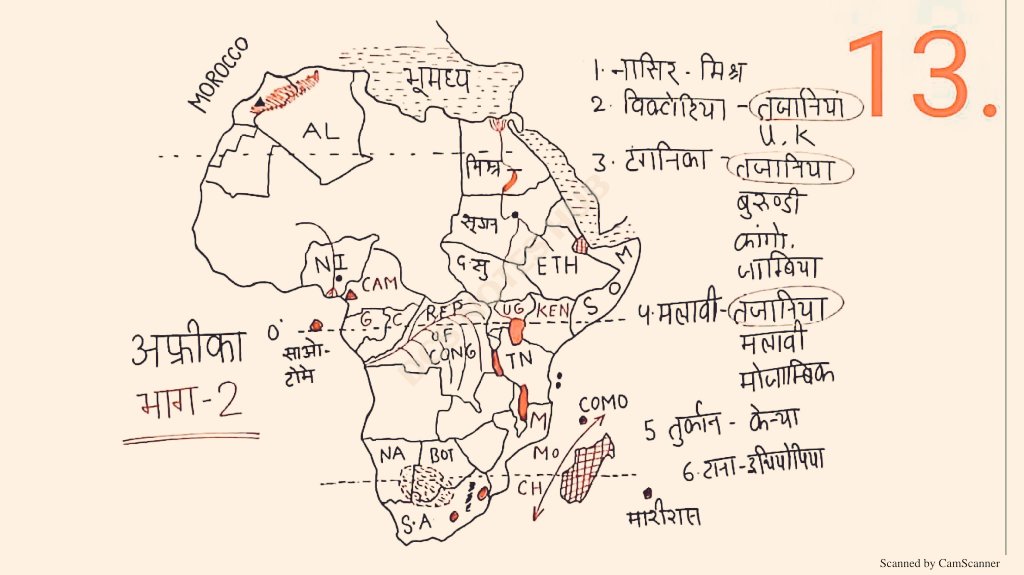 13.
MOROCCO
भूमध्य
AL
मिस्र
सूडान
द सु
ETH
SOM
NI
CAM
G
C
REP
OF
CONG
UG
KEN
TN
0°
साओ-
टोमे
अफ्रीका
भाग-2
M
COMO
Mo
CH
NA
BOT
S.A
मारीशस
1. नासिर - मिश्र
2. विक्टोरिया - तंजानियां
U, K
3. टंगनिका - तंजानिया
बुरुण्डी
कांगो.
जाम्बिया
4. मलावी - तंजानिया
मलावी
मोजाम्बिक
5 तुर्कान - केन्या
6. टाना - इथियोपिया
Scanned by CamScanner